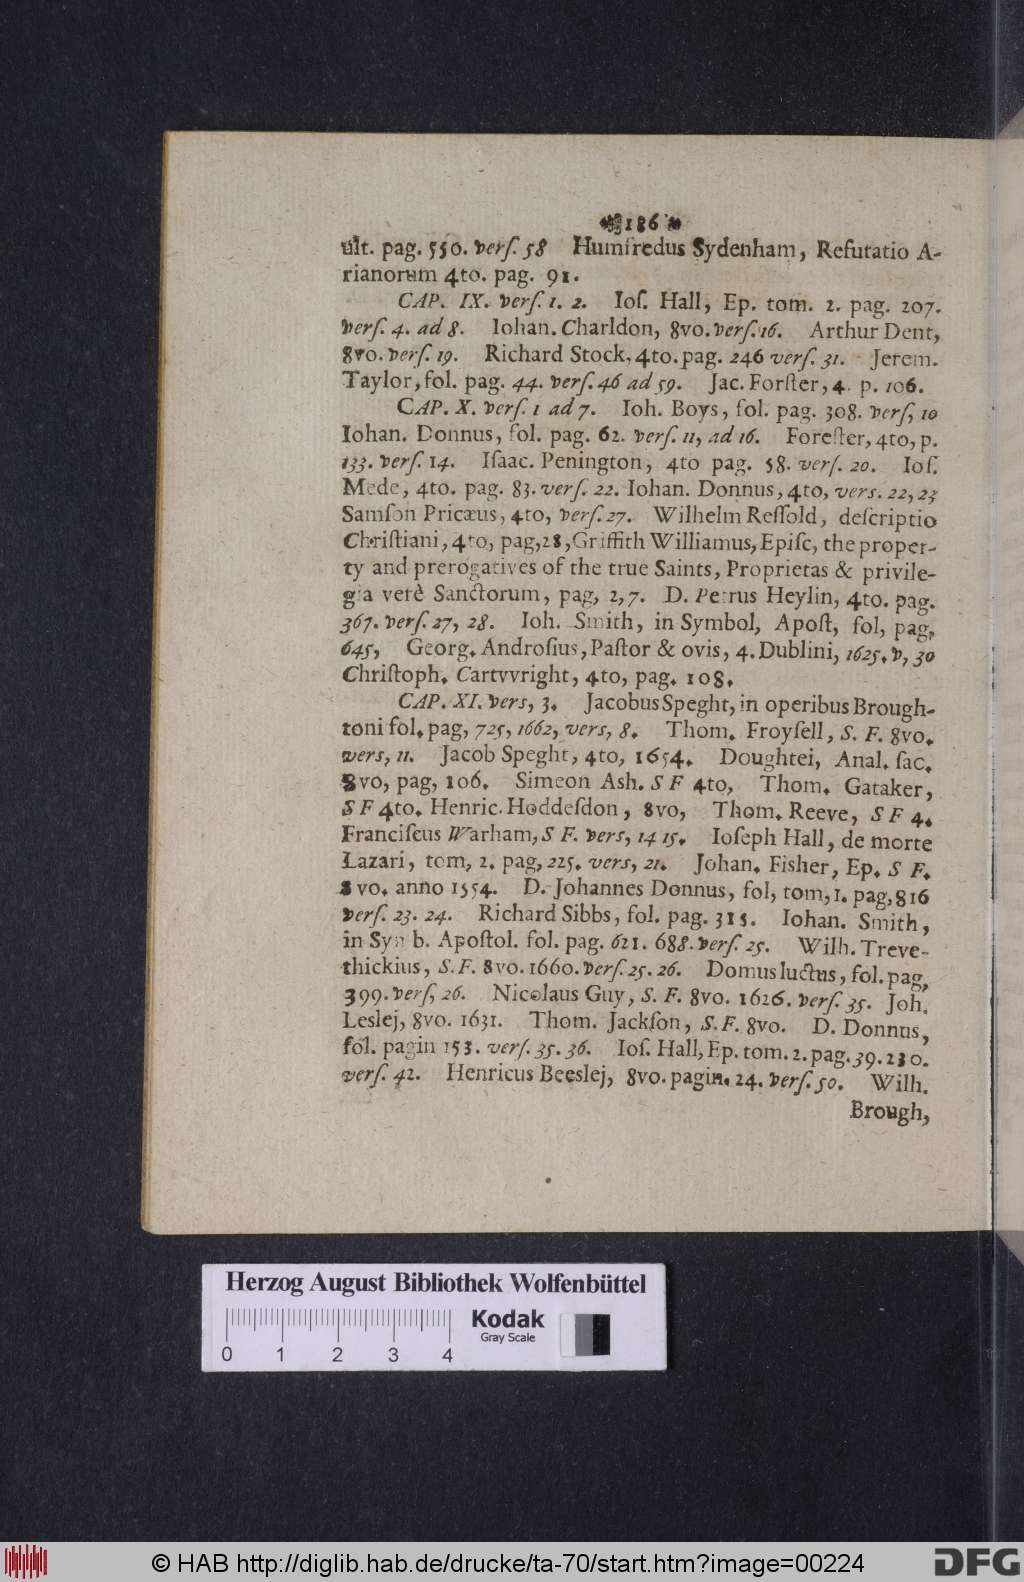 186
ult. pag. 550. verſ. 58 Humfredus Sydenham, Refutatio A-
rianorum 4to. pag. 91.
CAP. IX. verſ. 1. 2. Ioſ. Hall, Ep. tom. 2. pag. 207.
verſ. 4. ad 8. Iohan. Charldon, 8vo. verſ. 16. Arthur Dent,
8vo. verſ. 19. Richard Stock, 4to. pag. 246 verſ. 31. Jerem.
Taylor, fol. pag. 44. verſ. 46 ad 59. Jac. Forſter, 4. p. 106.
CAP. X. verſ. 1 ad 7. Ioh. Boys, fol. pag. 308. verſ, 10
Iohan. Donnus, fol. pag. 62. verſ. 11, ad 16. Foreſter, 4to, p.
133. verſ. 14. Iſaac. Penington, 4to pag. 58. verſ. 20. Ioſ.
Mede, 4to. pag. 83. verſ. 22. Iohan. Donnus, 4to, vers. 22, 23
Samſon Pricæus, 4to, verſ. 27. Wilhelm Reſſold, deſcriptio
Chriſtiani, 4to, pag, 28, Griffith Williamus, Epiſc, the proper-
ty and prerogatives of the true Saints, Proprietas & privile-
gia verè Sanctorum, pag, 2, 7. D. Petrus Heylin, 4to. pag.
367. verſ. 27, 28. Ioh. Smith, in Symbol, Apoſt, fol, pag,
645, Georg. Androſius, Paſtor & ovis, 4. Dublini, 1625. v, 30
Chriſtoph. Cartvvright, 4to, pag. 108.
CAP. XI. vers, 3. Jacobus Speght, in operibus Brough-
toni fol. pag, 725, 1662, vers, 8. Thom. Froyſell, S. F. 8vo.
vers, 11. Jacob Speght, 4to, 1654. Doughtei, Anal. ſac.
8vo, pag, 106. Simeon Ash. S F 4to, Thom. Gataker,
S F 4to. Henric. Hoddeſdon, 8vo, Thom. Reeve, S F 4.
Franciſcus Warham, S F. vers, 14 15. Ioſeph Hall, de morte
Lazari, tom, 2. pag, 225. vers, 21. Johan. Fisher, Ep. S F.
8vo. anno 1554. D. Johannes Donnus, fol, tom, 1. pag, 816
verſ. 23. 24. Richard Sibbs, fol. pag. 315. Iohan. Smith,
in Symb. Apoſtol. fol. pag. 621. 688. verſ. 25. Wilh. Treve-
thickius, S. F. 8vo. 1660. verſ. 25. 26. Domus luctus, fol. pag,
399. verſ, 26. Nicolaus Guy, S. F. 8vo. 1626. verſ. 35. Joh.
Leslej, 8vo. 1631. Thom. Jackſon, S. F. 8vo. D. Donnus,
fol. pagin 153. verſ. 35. 36. Ioſ. Hall, Ep. tom. 2. pag. 39. 230.
verſ. 42. Henricus Beeslej, 8vo. pagin. 24. verſ. 50. Wilh.
Brough,
Herzog August Bibliothek Wolfenbüttel
Kodak
Gray Scale
0 1 2 3 4
© HAB http://diglib.hab.de/drucke/ta-70/start.htm?image=00224
DFG